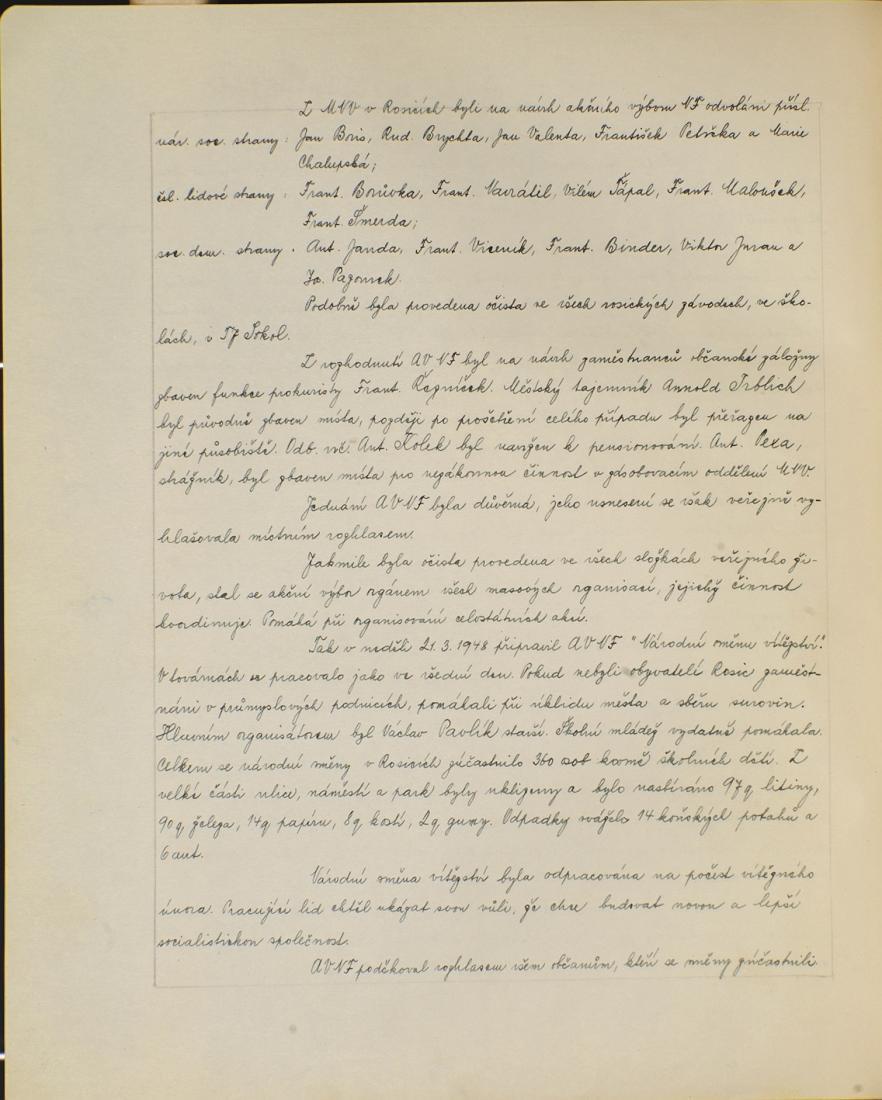 Z MNV v Rosicích byli na návrh akčního výboru NF odvoláni přísl.
nár. soc. strany: Jan Boris, Rud. Brychta, Jan Valenta, František Petrčka a Marie
Chalupská;
čsl. lidové strany: Frant. Borůvka, Frant. Navrátil, Vilém Tápal, Frant. Maloušek,
Frant. Šmerda;
soc. dem. strany: Ant. Janda, Frant. Viceník, Frant. Binder, Viktor Juran a
Jos. Pazourek.
Podobně byla provedena očista ve všech rosických závodech, ve ško-
lách, v TJ Sokol.
Z rozhodnutí AVNF byl na návrh zaměstnanců občanské záložny
zbaven funkce prokuristy Frant. Řezníček. Městský tajemník Arnold Trblich
byl původně zbaven místa, později po prošetření celého případu byl přeřazen na
jiné působiště. Odb. uč. Ant. Kolek byl navržen k pensionování. Ant. Pexa,
strážník, byl zbaven místa pro nezákonnou činnost v zásobovacím oddělení MNV.
Jednání AVNF byla důvěrná, jeho usnesení se však veřejně vy-
hlašovala místním rozhlasem.
Jakmile byla očista provedena ve všech složkách veřejného ži-
vota, stal se akční výbor orgánem všech masových organisací, jejichž činnost
koordinuje. Pomáhá při organisování celostátních akcí.
Tak v neděli 21. 3. 1948 připravil AVNF "Národní směnu vítězství".
V továrnách se pracovalo jako ve všední den. Pokud nebyli obyvatelé Rosic zaměst-
náni v průmyslových podnicích, pomáhali při úklidu města a sběru surovin.
Hlavním organisátorem byl Václav Pavlík starší. Školní mládež vydatně pomáhala.
Celkem se národní směny v Rosicích zúčastnilo 360 osob kromě školních dětí. Z
velké části ulice, náměstí a park byly uklizeny a bylo nasbíráno 97 q litiny,
90 q železa, 14 q papíru, 8 q kostí, 2 q gumy. Odpadky sváželo 14 koňských potahů a
6 aut.
Národní směna vítězství byla odpracována na počest vítězného
února. Pracující lid chtěl ukázat svou vůli, že chce budovat novou a lepší
socialistickou společnost.
AVNF poděkoval rozhlasem všem občanům, kteří se směny zúčastnili.